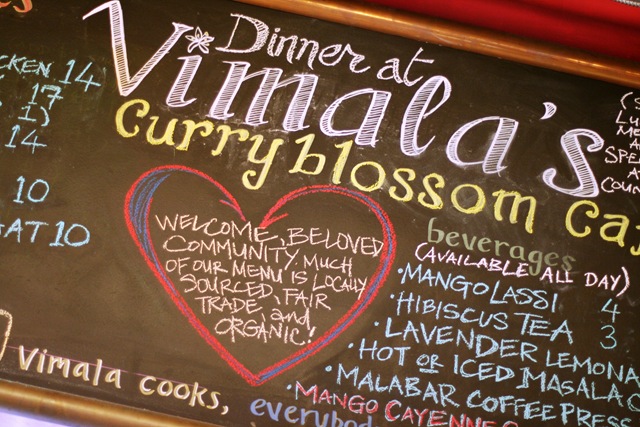 CKEN 14
17
14
10
AT 10
Dinner at
Vimala's
curryblossom Ca
WELCOME, BELOVED
COMMUNITY. MUCH
OF OUR MENU IS LOCALLY
SOURCED, FAIR
TRADE, and
ORGANIC!
beverages
(AVAILABLE ALL DAY)
• MANGO LASSI 4
• HIBISCUS TEA 3
• LAVENDER LEMONA
• HOT OR ICED MASALA C
• MALABAR COFFEE PRESS
• MANGO CAYENNE
Vimala cooks,
everybod